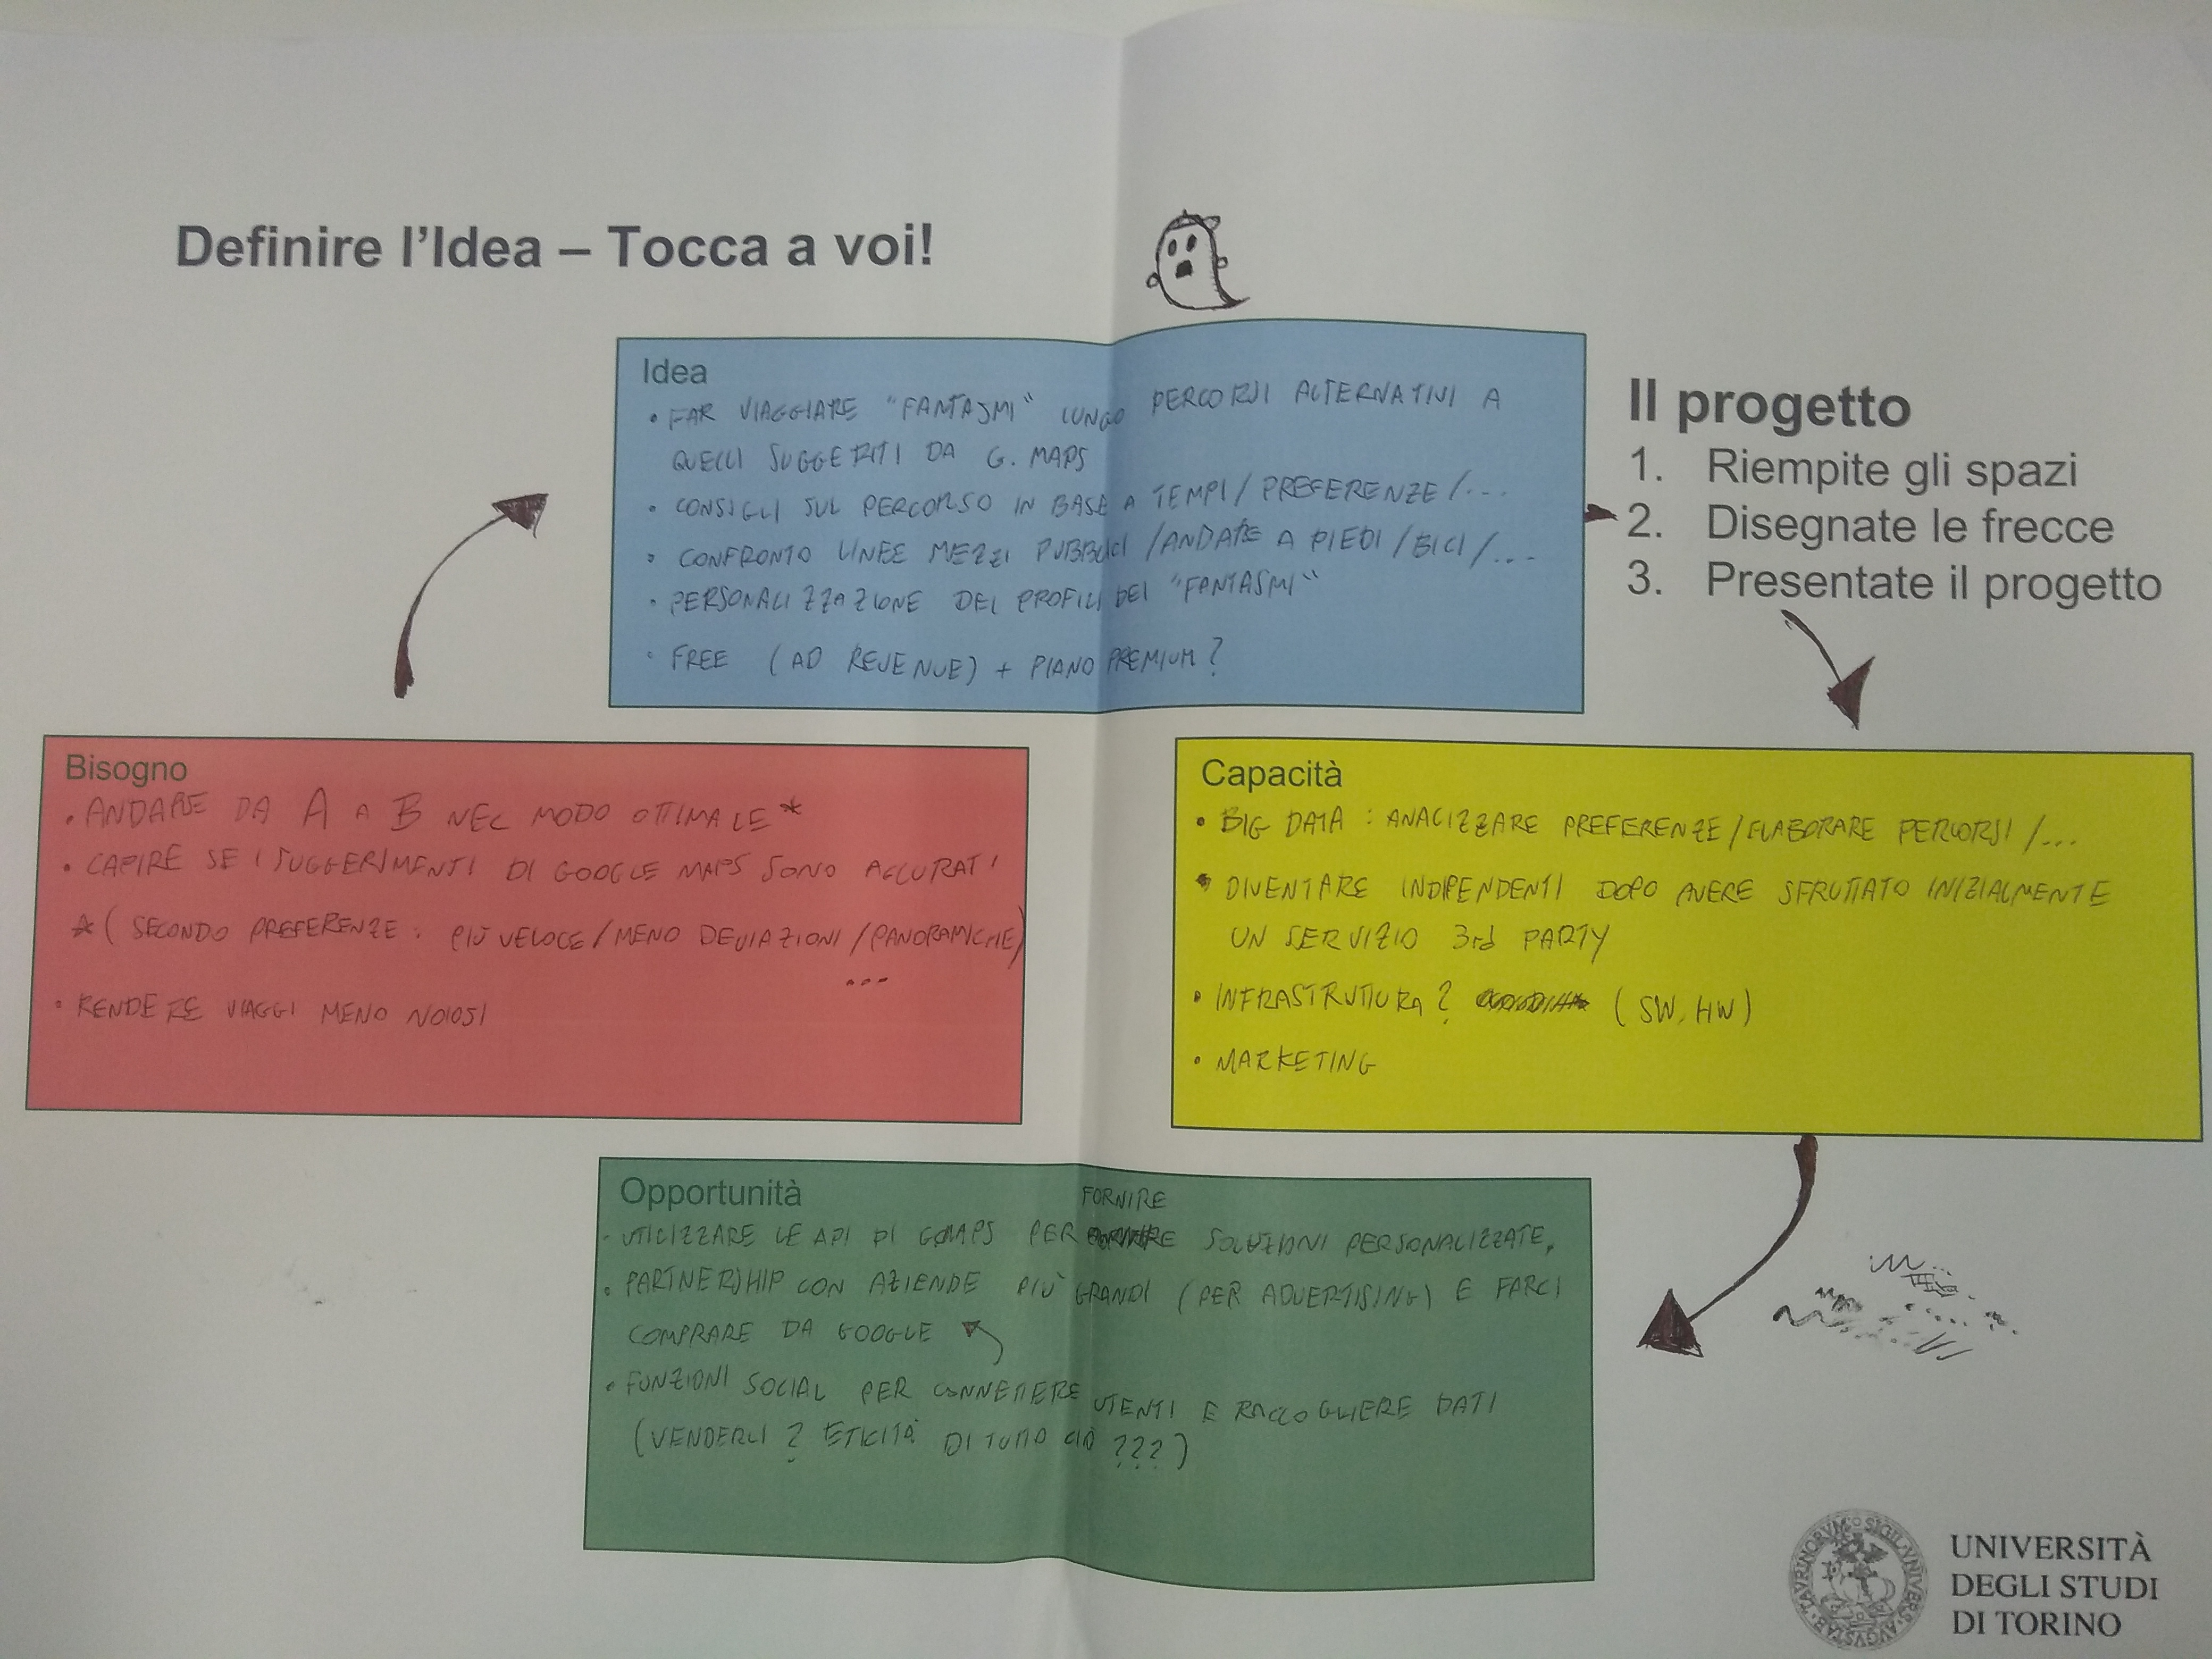 Definire l'Idea – Tocca a voi!
Idea
• FAR VIAGGIARE "FANTASMI" LUNGO PERCORSI ALTERNATIVI A
QUELLI SUGGERITI DA G. MAPS
• CONSIGLI SUL PERCORSO IN BASE A TEMPI/PREFERENZE/...
• CONFRONTO LINEE MEZZI PUBBLICI/ANDARE A PIEDI/BICI/...
• PERSONALIZZAZIONE DEI PROFILI DEI "FANTASMI"
• FREE (AD REVENUE) + PIANO PREMIUM?
Il progetto
1. Riempite gli spazi
2. Disegnate le frecce
3. Presentate il progetto
Bisogno
• ANDARE DA A A B NEL MODO OTTIMALE*
• CAPIRE SE I SUGGERIMENTI DI GOOGLE MAPS SONO ACCURATI
*(SECONDO PREFERENZE: PIÙ VELOCE/MENO DEVIAZIONI/PANORAMICHE)
...
• RENDERE VIAGGI MENO NOIOSI
Capacità
• BIG DATA: ANALIZZARE PREFERENZE/ELABORARE PERCORSI/...
• DIVENTARE INDIPENDENTI DOPO AVERE SFRUTTATO INIZIALMENTE
UN SERVIZIO 3rd PARTY
• INFRASTRUTTURA? (SW, HW)
• MARKETING
Opportunità
FORNIRE
• UTILIZZARE LE API DI GMAPS PER SOLUZIONI PERSONALIZZATE.
• PARTNERSHIP CON AZIENDE PIÙ GRANDI (PER ADVERTISING) E FARCI
COMPRARE DA GOOGLE
• FUNZIONI SOCIAL PER CONNETTERE UTENTI E RACCOGLIERE DATI
(VENDERLI? ETICITÀ DI TUTTO CIÒ???)
UNIVERSITÀ
DEGLI STUDI
DI TORINO